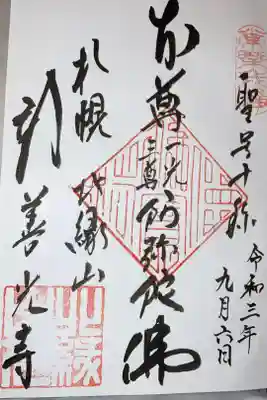 一聖号十称
令和三年
九月六日
本尊一光三尊阿弥陀佛
札幌 北縁山
新善光寺